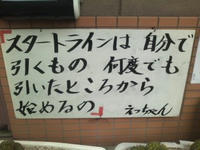 スタートラインは 自分で
引くもの 何度でも
引いたところから
始めるの えっちゃん